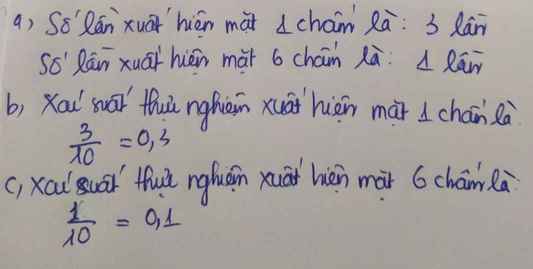 a, Số lần xuất hiện mặt 1 chấm là: 3 lần
Số lần xuất hiện mặt 6 chấm là: 1 lần
b, Xác suất thực nghiệm xuất hiện mặt 1 chấm là
3/10 = 0,3
c, Xác suất thực nghiệm xuất hiện mặt 6 chấm là:
1/10 = 0,1